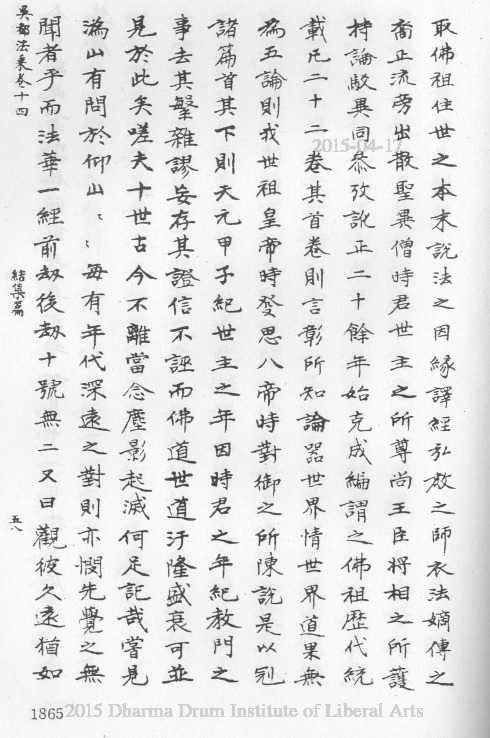 取佛祖住世之本末說法之因緣譯經弘教之師衣法嫡傳之
裔正流旁出散聖異僧時君世主之所尊尚王臣將相之所護
持論駁異同叅攷訛正二十餘年始克成編謂之佛祖歷代統
載凡二十二卷其首卷則言彰所知論器世界情世界道果無
為五論則我世祖皇帝時發思八帝時對御之所陳說是以冠
諸篇首其下則天元甲子紀世主之年因時君之年紀教門之
事去其繁雜謬妄存其證信不誣而佛道世道汙隆盛衰可並
見於此矣嗟夫十世古今不離當念塵影起滅何足記哉嘗見
溈山有問於仰山〻〻每有年代深遠之對則亦憫先覺之無
聞者乎而法華一經前劫後劫十號無二又曰觀彼久遠猶如
吳都法乘卷十四
結集篇
五八
1865
2015-04-17
2015 Dharma Drum Institute of Liberal Arts